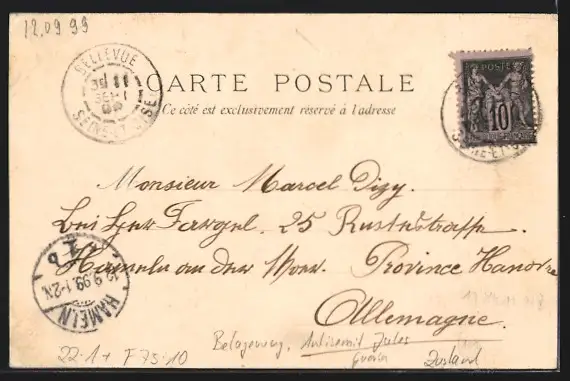 12.09.99
BELLEVUE
SEINE-ET-OISE
CARTE POSTALE
Ce côté est exclusivement réservé à l'adresse
POSTE
10
Monsieur Marcel Dizy.
bei Herr Fargel. 25
Hameln an der Weser. Province Hanovre
Allemagne.
9.99.1-2N
HAMELN
22.1+ F75.10
Belagerung, Antisemit Jules
Guerin